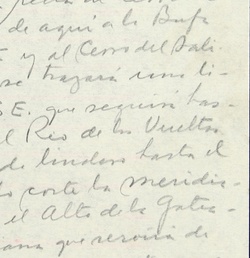 de aquí a la Bufa
E y al Cerro del Sali
se trazará una li-
S E. que seguirá has-
l Rio de las Vueltas
de lindero hasta el
corte la meridia-
el Alto de la Gatea-
ana que servirá de